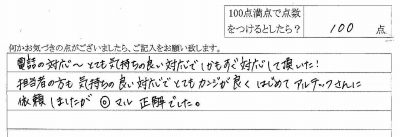 100点満点で点数
をつけるとしたら? 100 点
何かお気づきの点がございましたら、ご記入をお願い致します。
電話の対応〜とても気持ちの良い対応でしかもすぐ対応して頂いた!
担当者の方も気持ちの良い対応でとてもカンジが良くはじめてアルテックさんに
依頼しましたが◎マル正解でした。